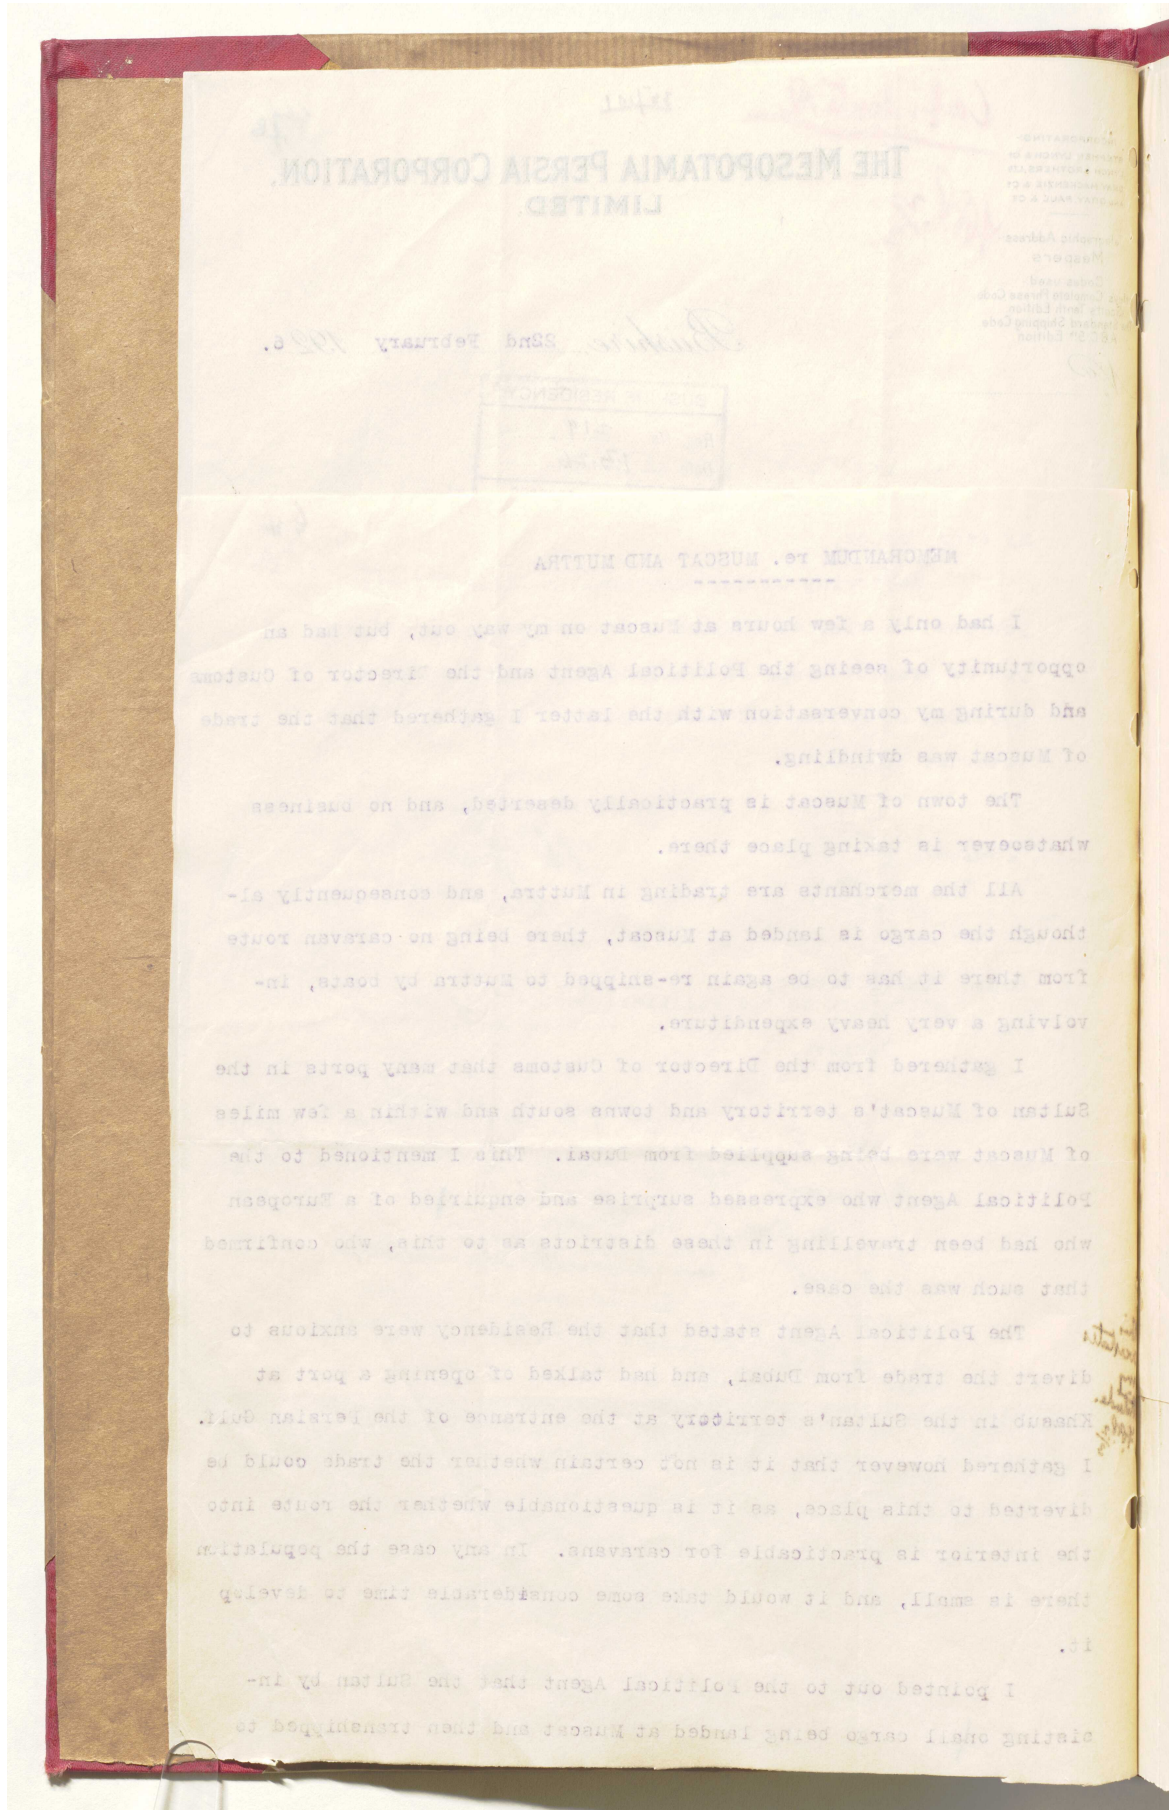 THE MESOPOTAMIA PERSIA CORPORATION.
LIMITED.
INCORPORATING
STEPHEN LYNCH & Co
LYNCH BROTHERS LTD
GRAY MACKENZIE & Co
GRAY, PAUL & Co
Telegraphic Address
Mespers
Codes used
Complete Phrase Code
Tenth Edition
Standard Shipping Code
A.B.C. 5th Edition
Bushire 22nd February 1926.
BUSHIRE RESIDENCY
MEMORANDUM re. MUSCAT AND MUTTRA
I had only a few hours at Muscat on my way out, but had an
opportunity of seeing the Political Agent and the Director of Customs
and during my conversation with the latter I gathered that the trade
of Muscat was dwindling.
The town of Muscat is practically deserted, and no business
whatsoever is taking place there.
All the merchants are trading in Muttra, and consequently al-
though the cargo is landed at Muscat, there being no caravan route
from there it has to be again re-shipped to Muttra by boats, in-
volving a very heavy expenditure.
I gathered from the Director of Customs that many ports in the
Sultan of Muscat's territory and towns south and within a few miles
of Muscat were being supplied from Dubai. This I mentioned to the
Political Agent who expressed surprise and enquiried of a European
who had been travelling in these districts as to this, who confirmed
that such was the case.
The Political Agent stated that the Residency were anxious to
divert the trade from Dubai, and had talked of opening a port at
Khasub in the Sultan's territory at the entrance of the Persian Gulf.
I gathered however that it is not certain whether the trade could be
diverted to this place, as it is questionable whether the route into
the interior is practicable for caravans. In any case the population
there is small, and it would take some considerable time to develop
it.
I pointed out to the Political Agent that the Sultan by in-
sisting onall cargo being landed at Muscat and then transhipped to